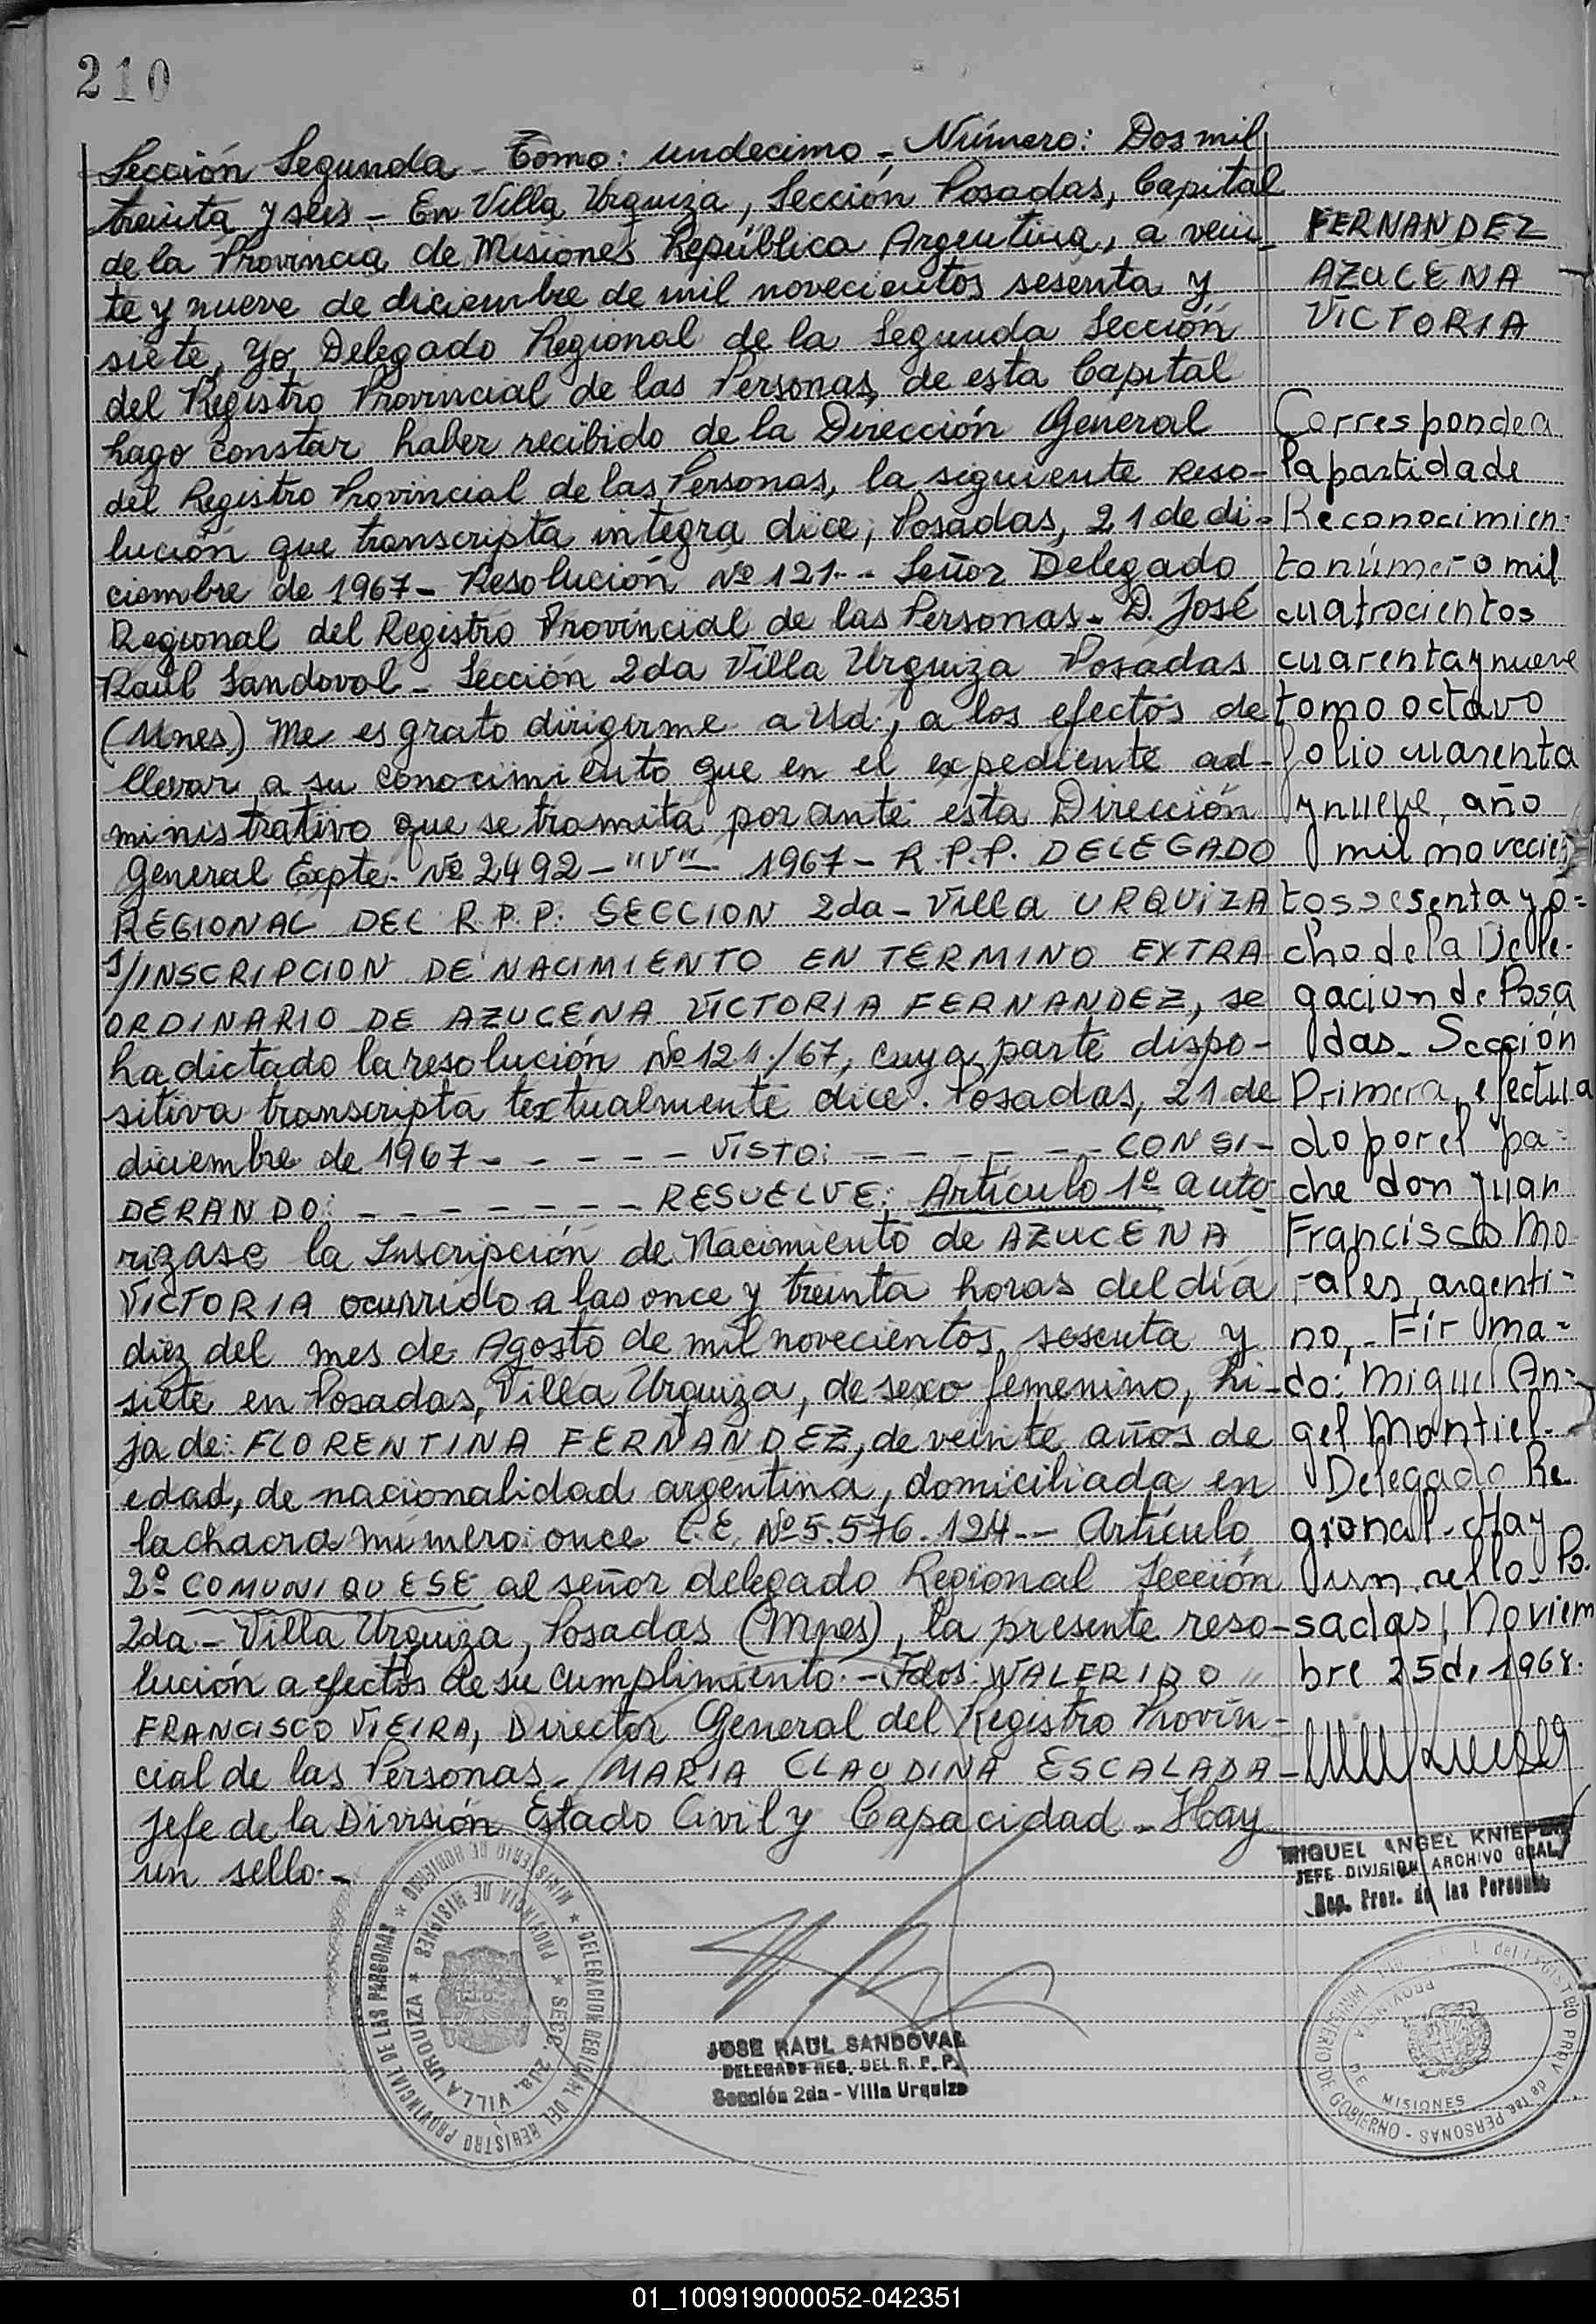 210
Sección Segunda - Tomo: undecimo - Número: Dos mil
treinta y seis - En Villa Urquiza, Sección Posadas, Capital
de la Provincia de Misiones República Argentina, a vein-
te y nueve de diciembre de mil novecientos sesenta y
siete, Yo, Delegado Regional de la Segunda Sección
del Registro Provincial de las Personas, de esta Capital
hago constar haber recibido de la Dirección General
del Registro Provincial de las Personas, la siguiente reso-
lución que transcripta integra dice, Posadas, 21 de di-
ciembre de 1967 - Resolución Nº 121.-- Señor Delegado
Regional del Registro Provincial de las Personas - D. José
Raúl Sandoval - Sección 2da Villa Urquiza Posadas
(Mnes.) Me es grato dirigirme a Ud., a los efectos de
llevar a su conocimiento que en el expediente ad-
ministrativo que se tramita por ante esta Dirección
General Expte. Nº 2492 - "V" - 1967 - R.P.P. DELEGADO
REGIONAL DEL R.P.P. SECCION 2da - Villa URQUIZA
S/INSCRIPCION DE NACIMIENTO EN TERMINO EXTRA
ORDINARIO DE AZUCENA VICTORIA FERNANDEZ, se
ha dictado la resolución Nº 121./67, cuya parte dispo-
sitiva transcripta textualmente dice. Posadas, 21 de
diciembre de 1967 - - - - - VISTO: - - - - - - CONSI-
DERANDO: - - - - - - - RESUELVE: Artículo 1º auto-
rizase la Inscripción de Nacimiento de AZUCENA
VICTORIA ocurrido a las once y treinta horas del día
diez del mes de Agosto de mil novecientos sesenta y
siete en Posadas, Villa Urquiza, de sexo femenino, hi-
ja de: FLORENTINA FERNANDEZ, de veinte años de
edad, de nacionalidad argentina, domiciliada en
la chacra número once C.E. Nº 5.576.124 -- Artículo
2º COMUNIQUESE al señor delegado Regional Sección
2da - Villa Urquiza, Posadas (Mnes), la presente reso-
lución a efectos de su cumplimiento. - Fdos: WALERIDO
FRANCISCO VIEIRA, Director General del Registro Provin-
cial de las Personas - MARIA CLAUDINA ESCALADA -
Jefe de la División Estado Civil y Capacidad - Hay
un sello. -
FERNANDEZ
AZUCENA
VICTORIA
Corresponde a
la partida de
Reconocimien-
to número mil
cuatrocientos
cuarenta y nueve
tomo octavo
folio cuarenta
y nueve, año
mil novecien
tos sesenta y o-
cho de la Dele-
gacion de Posa
das - Sección
Primera, efectua
do por el pa-
dre don Juan
Francisco Mo
rales, argenti-
no, - Firma-
do: Miguel An-
gel Montiel -
Delegado Re
gional - Hay
un sello - Po.
sadas, Noviem
bre 25 de 1968.
MIGUEL ANGEL KNIEPER
JEFE DIVISION ARCHIVO GRAL.
Reg. Prov. de las Personas
JOSE RAUL SANDOVAL
DELEGADO REG. DEL R. P. P.
Sección 2da - Villa Urquiza
DELEGACION REGIONAL DEL REGISTRO PROVINCIAL DE LAS PERSONAS * MINISTERIO DE GOBIERNO *
PROVINCIA DE MISIONES * SECC. 2da. VILLA URQUIZA *
MINISTERIO DE GOBIERNO - REGISTRO PROV. de las PERSONAS
PROVINCIA DE MISIONES
01_100919000052-042351